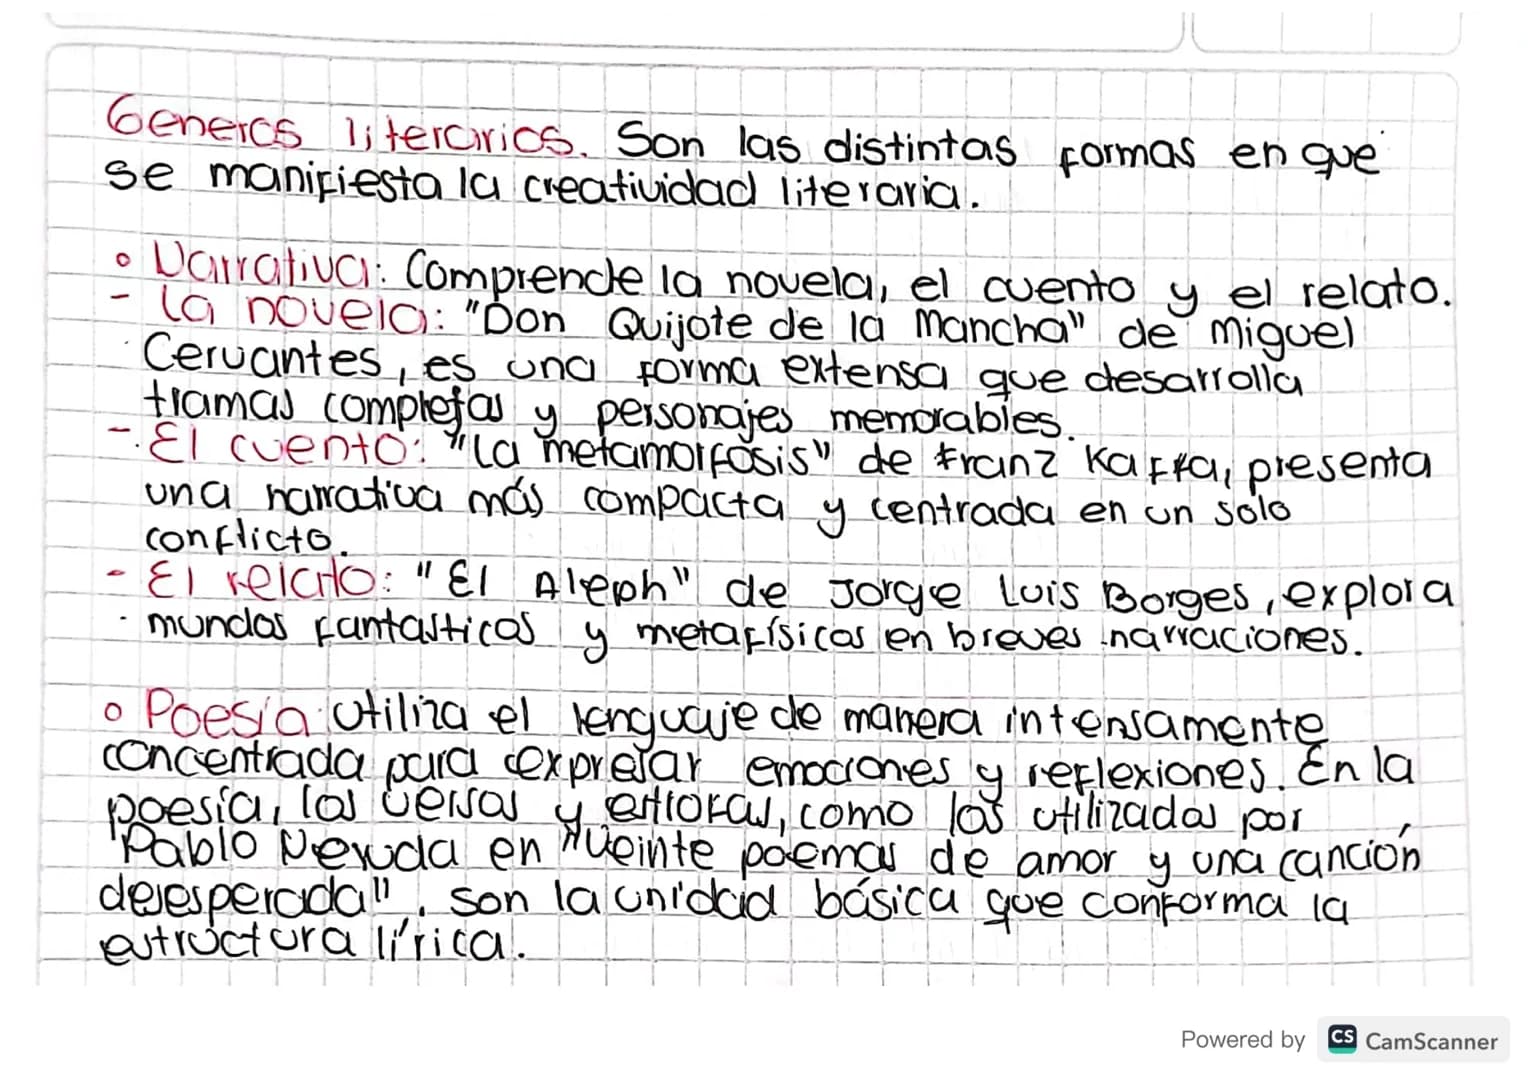 Generos literarios. Son las distintas formas en que
se manifiesta la creatividad literaria.
° Narrativa: Comprende la novela, el cuento y el relato.
- La novela: "Don Quijote de la Mancha" de Miguel
Cervantes, es una forma extensa que desarrolla
tramas complejas y personajes memorables.
- El cuento: "La metamorfosis" de Franz Kaffa, presenta
una narrativa más compacta y centrada en un solo
conflicto.
- El relato: "El Aleph" de Jorge Luis Borges, explora
mundos fantasticos y metafísicos en breves narraciones.
° Poesía: Utiliza el lenguaje de manera intensamente
concentrada para expresar emociones y reflexiones. En la
poesía, los versos y estrofas, como los utilizados por
Pablo Neruda en "Veinte poemas de amor y una canción
desesperada", son la unidad básica que conforma la
estructura lírica.
Powered by CS CamScanner